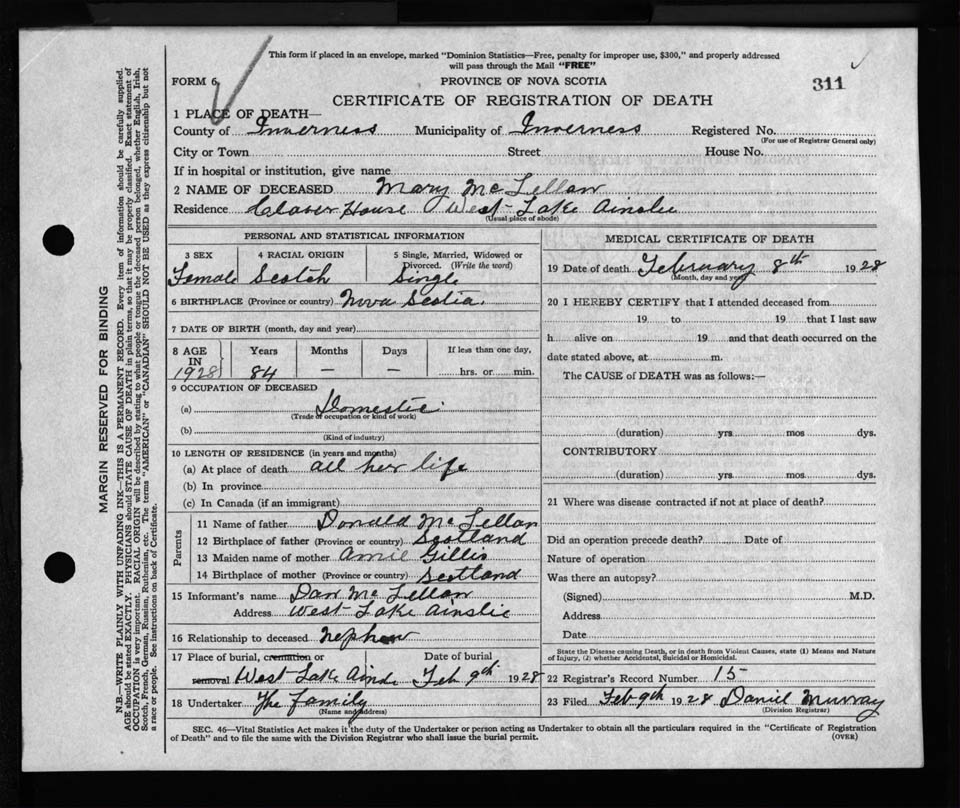 This form if placed in an envelope, marked "Dominion Statistics—Free, penalty for improper use, $300," and properly addressed
will pass through the Mail "FREE"
FORM 6 PROVINCE OF NOVA SCOTIA 311
CERTIFICATE OF REGISTRATION OF DEATH
1 PLACE OF DEATH—
County of Inverness Municipality of Inverness Registered No.
(For use of Registrar General only)
City or Town Street House No.
If in hospital or institution, give name
2 NAME OF DECEASED Mary McLellan
Residence House West Lake Ainslie
(Usual place of abode)
PERSONAL AND STATISTICAL INFORMATION
3 SEX 4 RACIAL ORIGIN 5 Single, Married, Widowed or
Divorced. (Write the word)
Female Scotch Single
6 BIRTHPLACE (Province or country) Nova Scotia
7 DATE OF BIRTH (month, day and year)
8 AGE IN Years Months Days If less than one day,
1928 84 — — hrs. or min.
9 OCCUPATION OF DECEASED
(a) Domestic
(Trade or occupation or kind of work)
(b)
(Kind of industry)
10 LENGTH OF RESIDENCE (in years and months)
(a) At place of death all her life
(b) In province
(c) In Canada (if an immigrant)
Parents
11 Name of father Donald McLellan
12 Birthplace of father (Province or country) Scotland
13 Maiden name of mother Gillis
14 Birthplace of mother (Province or country) Scotland
15 Informant's name Dan McLellan
Address West Lake Ainslie
16 Relationship to deceased nephew
17 Place of burial, cremation or Date of burial
removal West Lake Feb 9th 1928
18 Undertaker The family
(Name and address)
MEDICAL CERTIFICATE OF DEATH
19 Date of death February 8th 1928
(Month, day and year)
20 I HEREBY CERTIFY that I attended deceased from
19 to 19 that I last saw
h alive on 19 and that death occurred on the
date stated above, at m.
The CAUSE of DEATH was as follows:—
(duration) yrs mos dys.
CONTRIBUTORY
(duration) yrs. mos dys.
21 Where was disease contracted if not at place of death?
Did an operation precede death? Date of
Nature of operation
Was there an autopsy?
(Signed) M.D.
Address
Date
State the Disease causing Death, or in death from Violent Causes, state (1) Means and Nature
of Injury, (2) whether Accidental, Suicidal or Homicidal.
22 Registrar's Record Number 15
23 Filed Feb 9th 1928 Daniel Murray
(Division Registrar)
SEC. 46—Vital Statistics Act makes it the duty of the Undertaker or person acting as Undertaker to obtain all the particulars required in the "Certificate of Registration
of Death" and to file the same with the Division Registrar who shall issue the burial permit. (OVER)
MARGIN RESERVED FOR BINDING
N.B.—WRITE PLAINLY WITH UNFADING INK—THIS IS A PERMANENT RECORD. Every item of information should be carefully supplied.
AGE should be stated EXACTLY. PHYSICIANS should STATE CAUSE OF DEATH in plain terms, so that it may be properly classified. Exact statement of
OCCUPATION is very important. RACIAL ORIGIN will be described by stating to what people or tongue the deceased person belonged, whether English, Irish,
Scotch, French, German, Russian, Ruthenian, etc. The terms "AMERICAN" or "CANADIAN" SHOULD NOT BE USED as they express citizenship but not
a race or people. See instructions on back of Certificate.